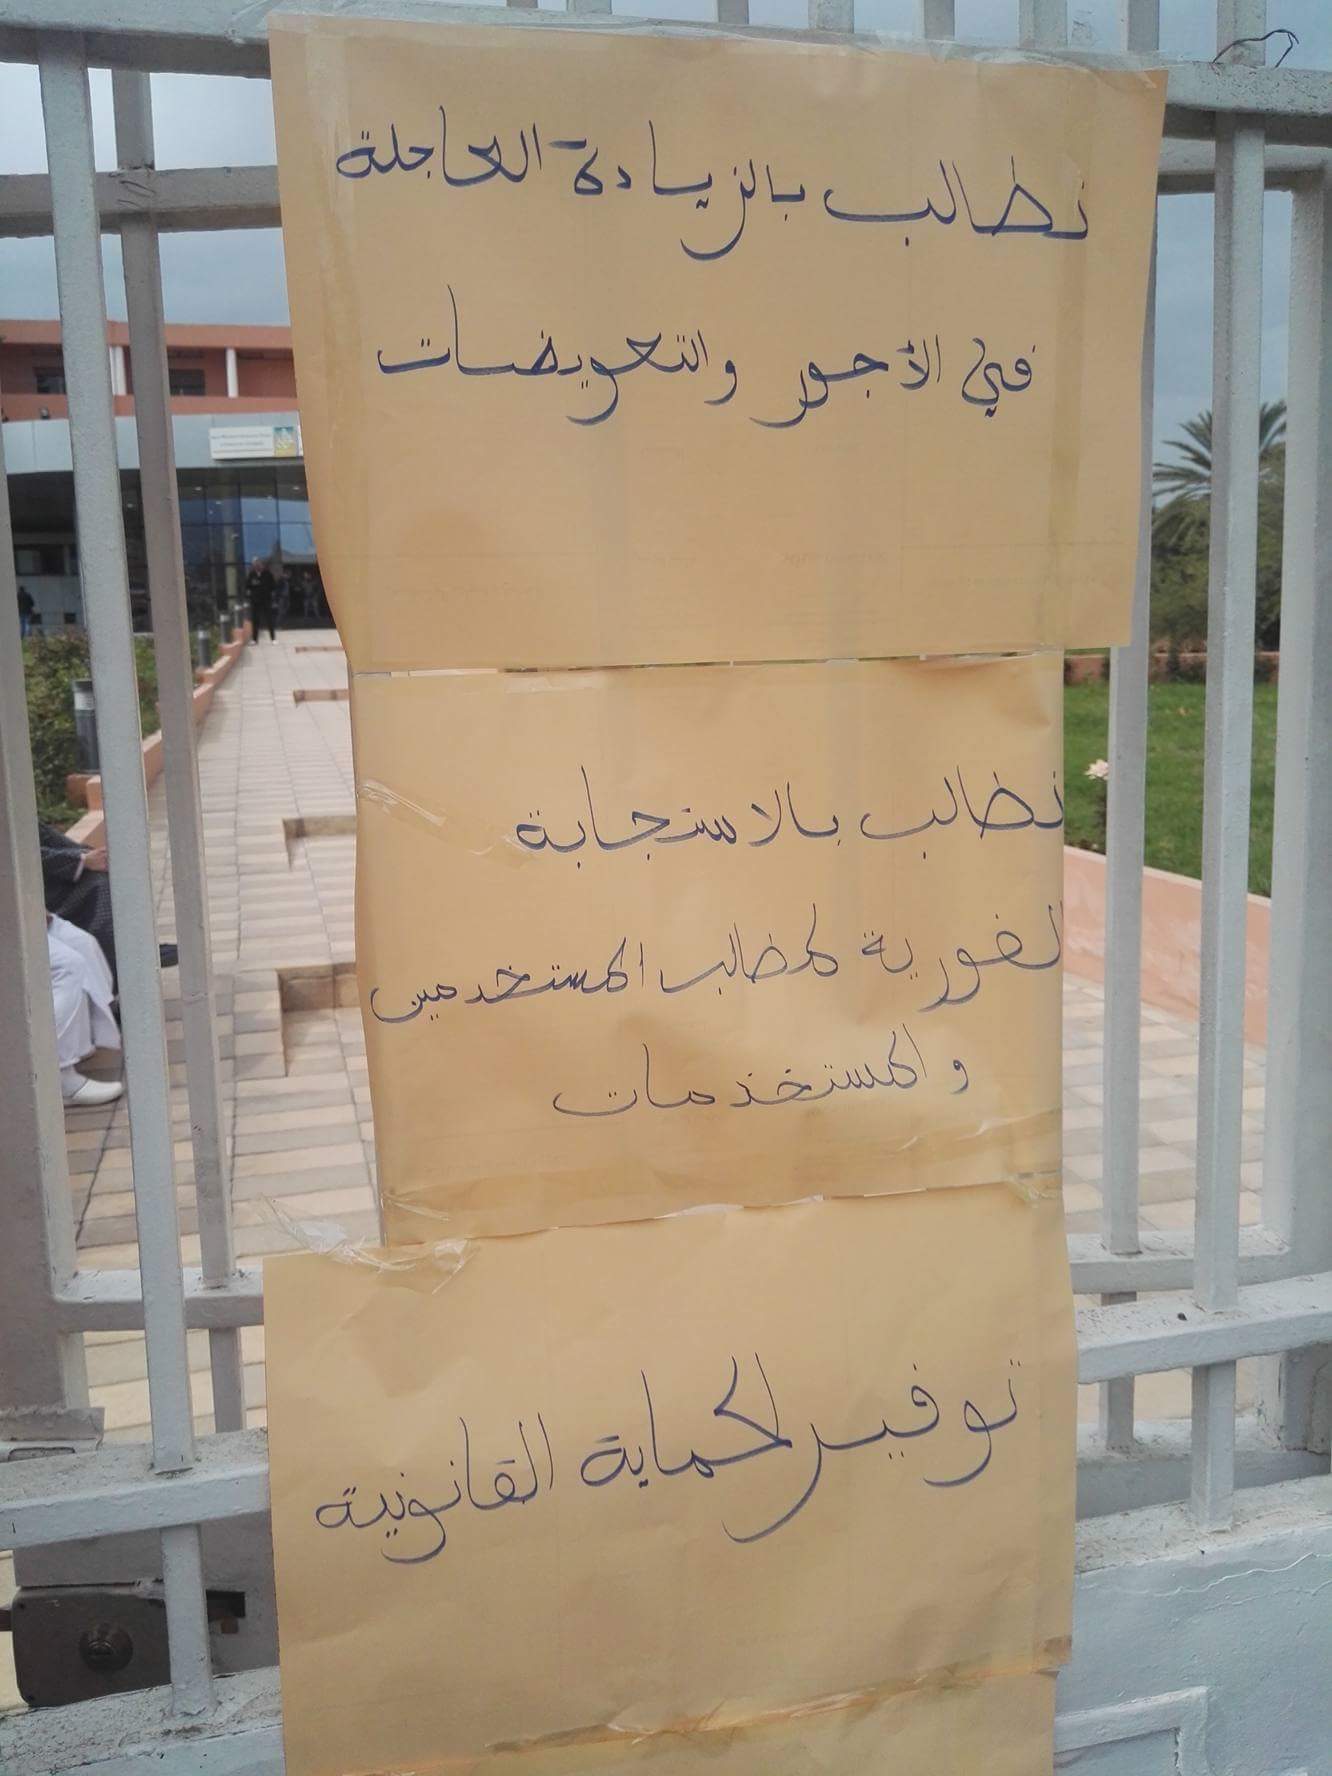 نطالب بالزيادة العاجلة
في الأجور والتعويضات
نطالب بالاستجابة
الفورية لمطالب المستخدمين
والمستخدمات
توفير الحماية القانونية